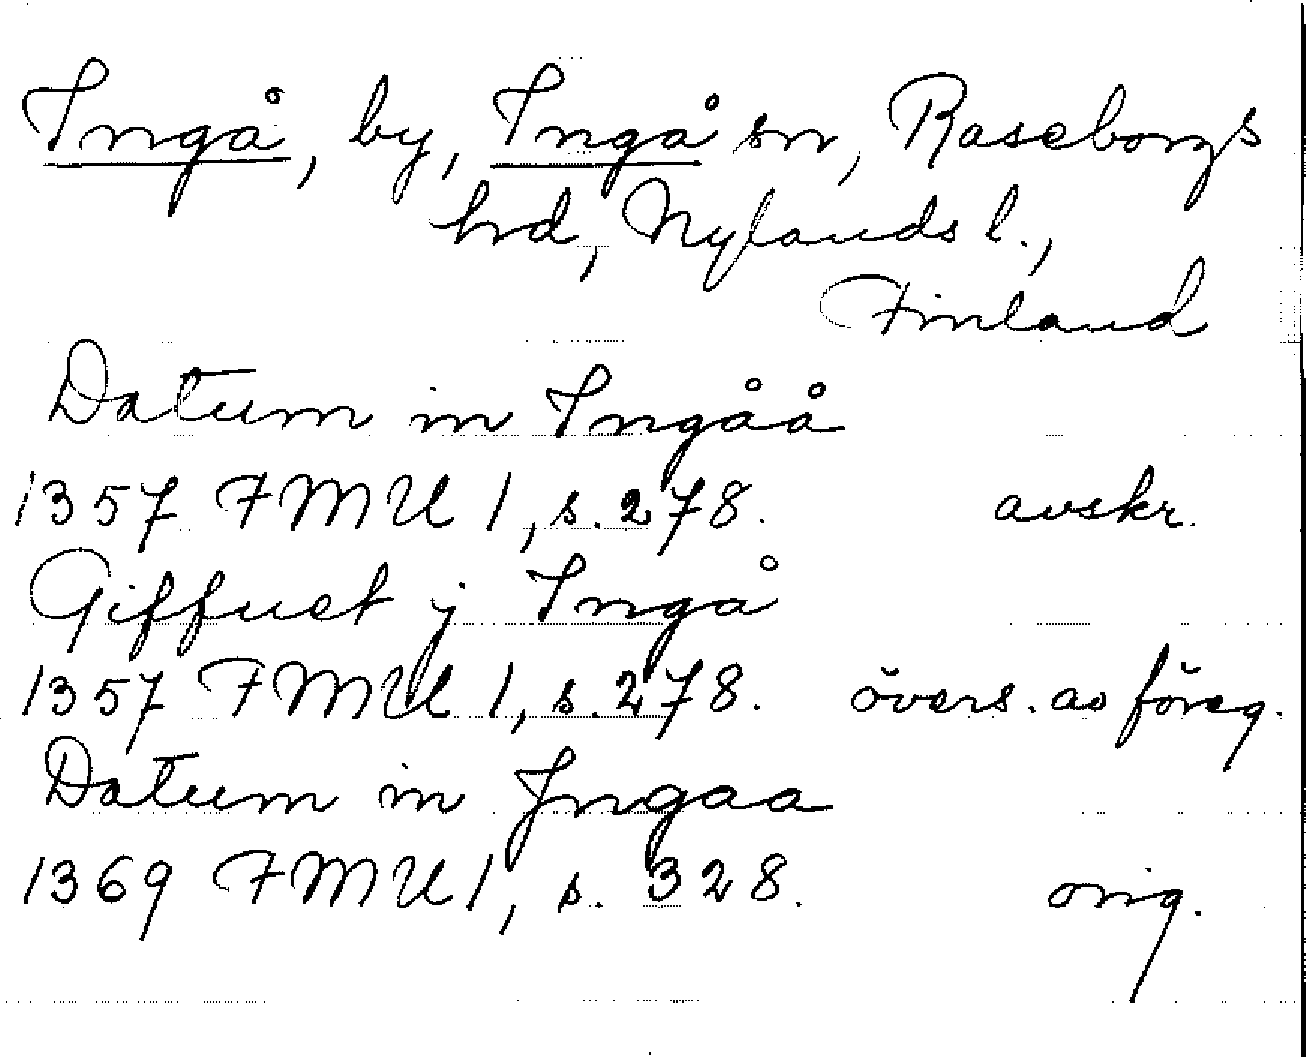 Ingå, by, Ingå sn, Raseborgs
hrd, Nylands l.,
Finland
Datum in Ingåå
1357 FMU 1, s. 278. avskr.
Giffuet j Ingå
1357 FMU 1, s. 278. övers. av föreg.
Datum in Jngaa
1369 FMU 1, s. 328. orig.